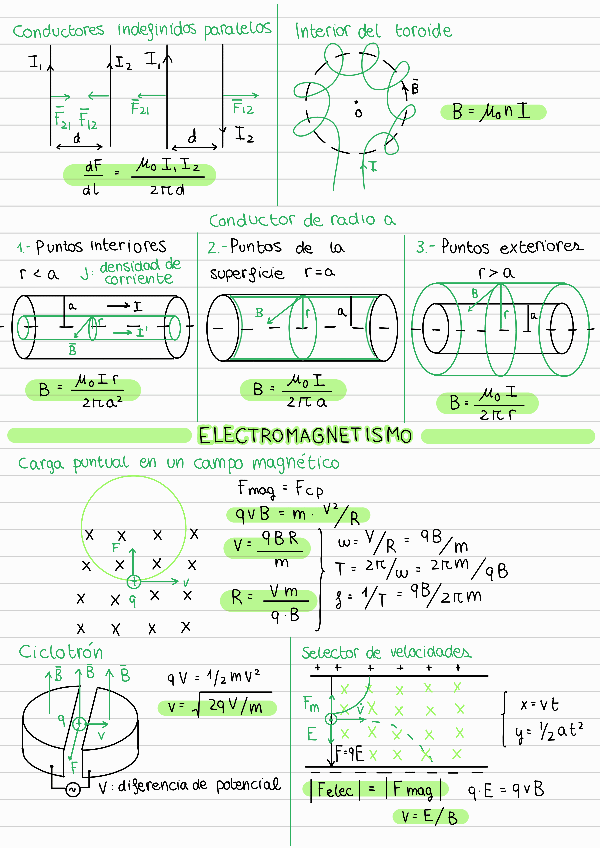 Conductores indefinidos paralelos
I₁ I₂ I₁
F̅₂₁ F̅₁₂ F̅₂₁ F̅₁₂
d d I₂
dF/dl = μ₀ I₁ I₂ / 2πd
Interior del toroide
B̅
O
I
B = μ₀ n I
Conductor de radio a
1.- Puntos interiores
r < a J: densidad de corriente
a I
r I'
B̅
B = μ₀ I r / 2πa²
2.- Puntos de la
superficie r = a
B r a
B = μ₀ I / 2πa
3.- Puntos exteriores
r > a
B r a
B = μ₀ I / 2πr
ELECTROMAGNETISMO
Carga puntual en un campo magnético
x x x x
F x x x
q v
x x x x
x x x x
Fmag = Fcp
qvB = m · v²/R
v = qBR / m
R = vm / q·B
ω = v/R = qB/m
T = 2π/ω = 2πm/qB
f = 1/T = qB/2πm
Ciclotrón
B̅ B B̅
q v
F
~
qV = 1/2 mv²
v = √2qV/m
V: diferencia de potencial
Selector de velocidades
+ + + + + +
x x x x
Fm x x x x
v̅ x x x
E x x x
F=qE x x x x
x = vt
y = 1/2 at²
|Felec| = |Fmag| q·E = qvB
v = E/B